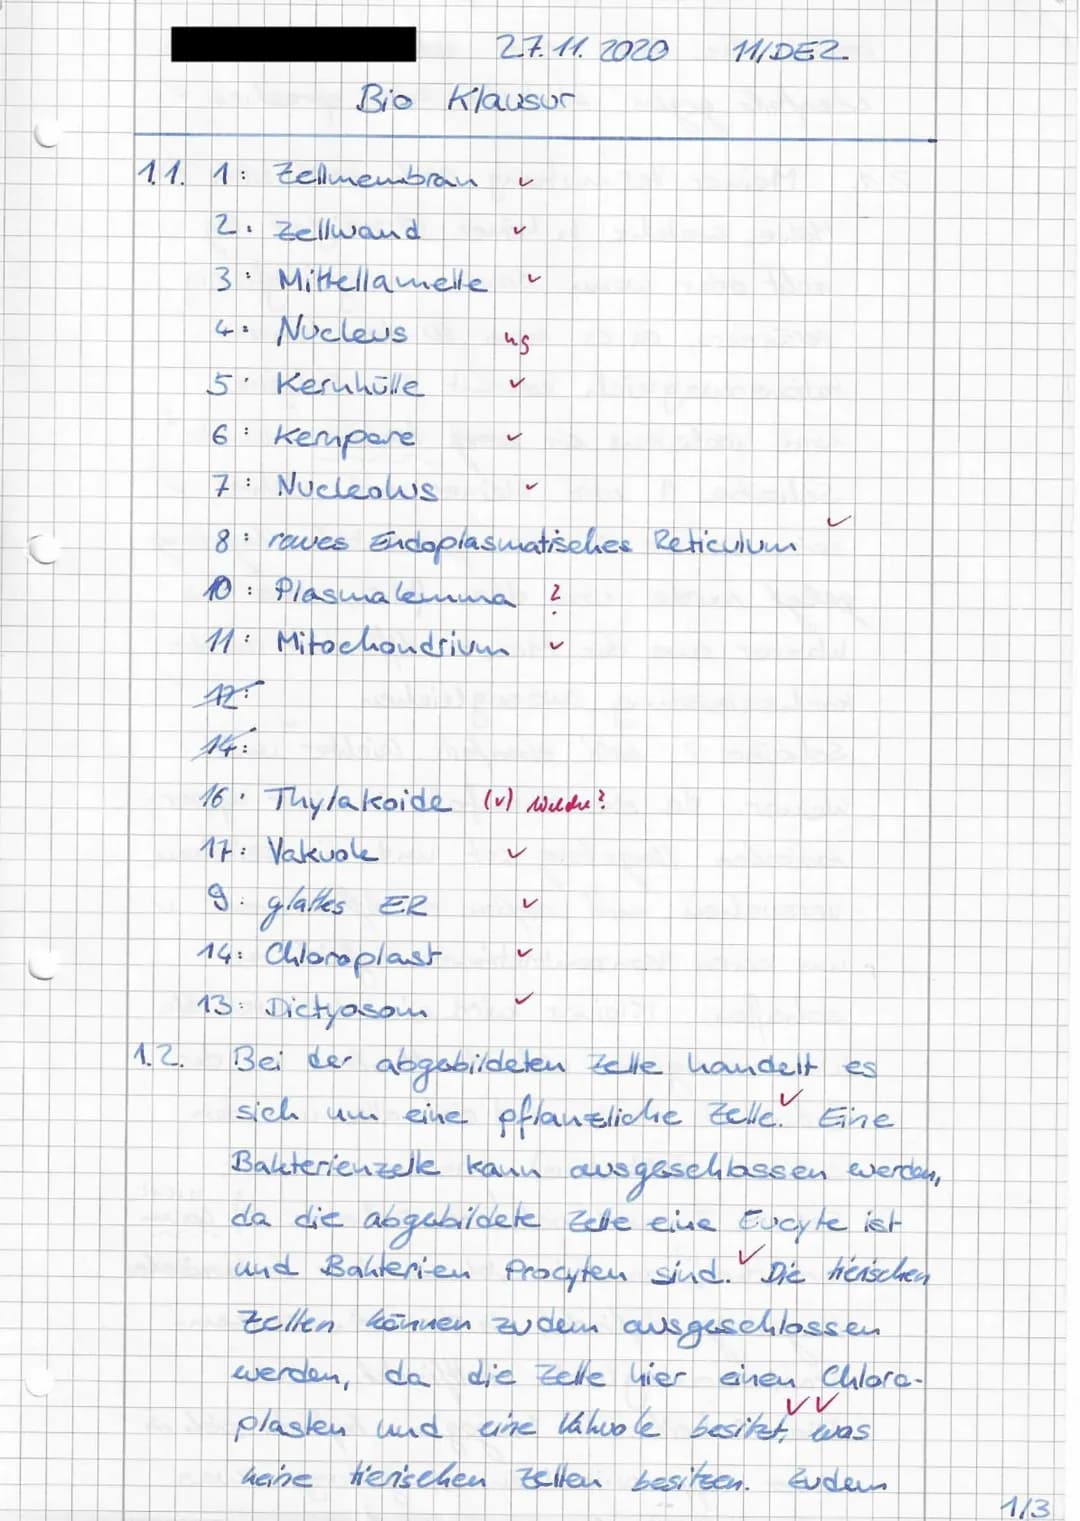 27.11.2020 11/DEZ
Bio Klausur
1.1. 1: Zellmembran ✓
2. Zellwand ✓
3: Mittellamelle ✓
4: Nucleus ug
5: Kernhülle ✓
6: Kernpore ✓
7: Nucleolus ✓
8: raues Endoplasmatisches Reticulum ✓
10: Plasmalemma ?
11: Mitochondrium ✓
12:
14:
16: Thylakoide (v) Welche?
17: Vakuole ✓
9: glattes ER ✓
14: Chloroplast ✓
13: Dictyosom ✓
1.2. Bei der abgebildeten Zelle handelt es
sich um eine pflanzliche Zelle. ✓ Eine
Bakterienzelle kann ausgeschlossen werden,
da die abgebildete Zelle eine Eucyte ist
und Bakterien Procyten sind. ✓ Die tierischen
Zellen können zudem ausgeschlossen
werden, da die Zelle hier einen Chloro-
plasten und eine Vakuole besitzt, ✓✓ was
keine tierischen Zellen besitzen. Zudem
1/3